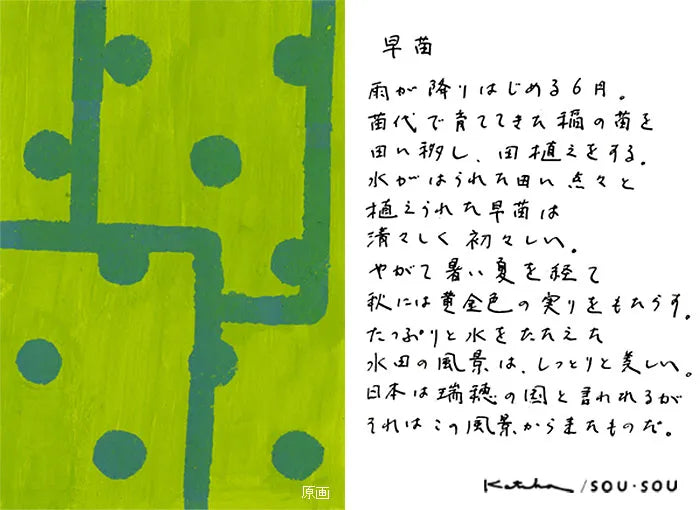 早苗
雨が降りはじめる6月。
苗代で育ててきた稲の苗を
田に移し、田植えをする。
水がはられた田に点々と
植えられた早苗は
清々しく初々しい。
やがて暑い夏を経て
秋には黄金色の実りをもたらす。
たっぷりと水をたたえた
水田の風景は、しっとりと美しい。
日本は瑞穂の国と言われるが
それはこの風景から来たものだ。
/SOU・SOU
原画